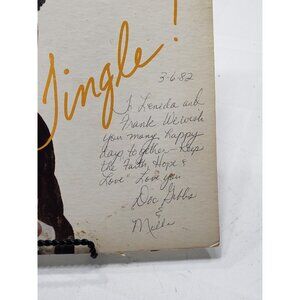 Jingle!
3-6-82
To Leneda and
Frank. We wish
you many happy
days together - Keep
the Faith, Hope &
Love" Love you
Doc Gibbs
&